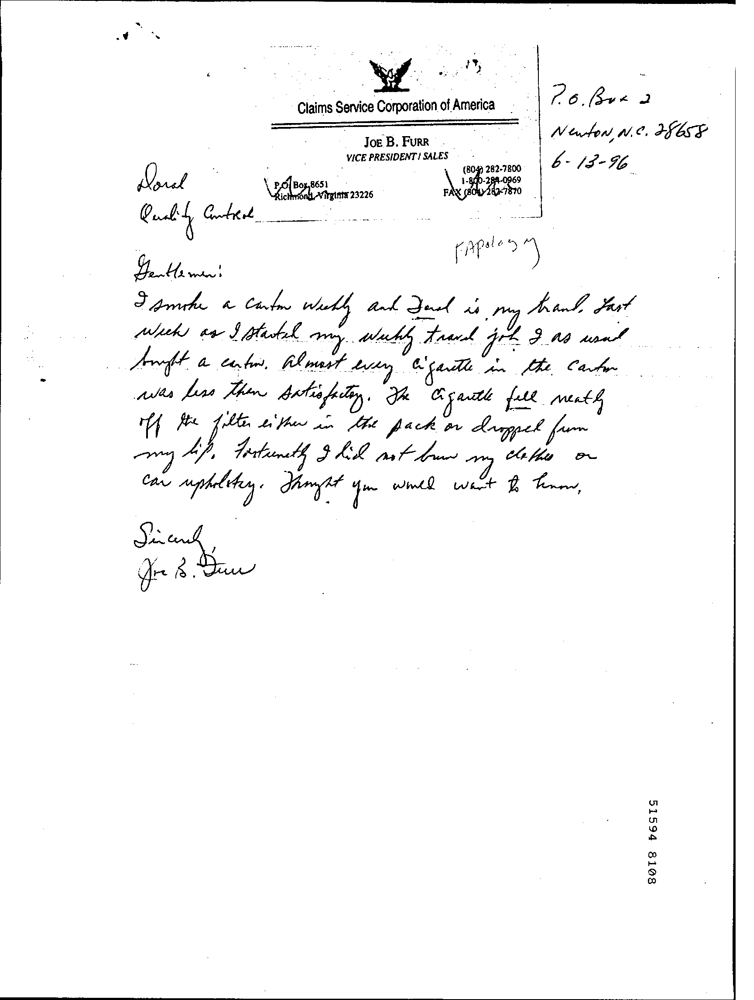 Claims Service Corporation of America
JOE B. FURR
VICE PRESIDENT / SALES
P.O. Box 8651
Richmond, Virginia 23226
(804) 282-7800
1-800-284-0969
FAX (804) 282-7870
P.O. Box 2
Newton, N.C. 28658
6-13-96
Doral
Quality Control
Apology
Gentlemen:
I smoke a carton weekly and Doral is my brand. Last
week as I started my weekly travel job I as usual
bought a carton. Almost every cigarette in the carton
was less then satisfactory. The cigarette fell neatly
off the filter either in the pack or dropped from
my lip. Fortunetly I did not burn my clothes or
car upholstry. Thought you would want to know.
Sincerely,
Joe B. Furr
51594 8108